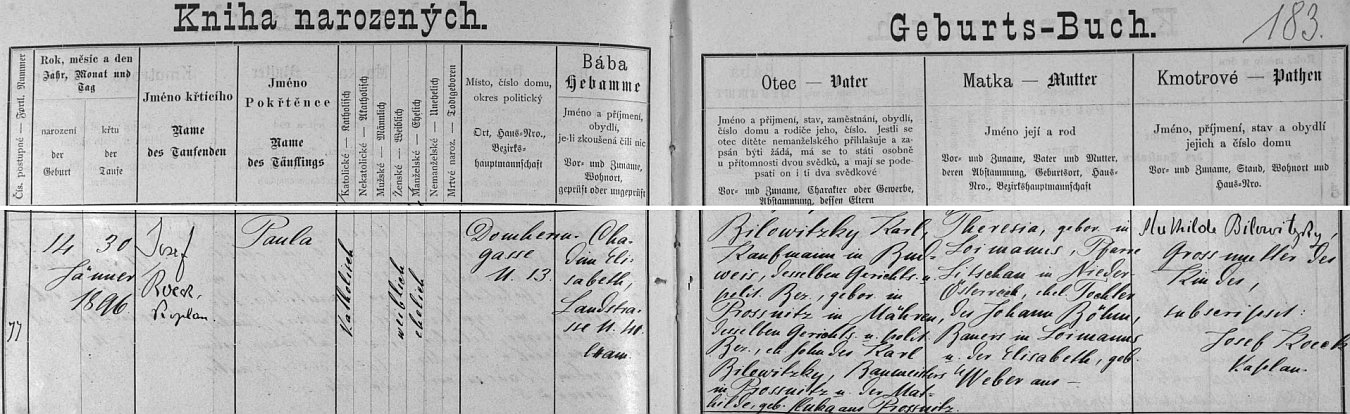 Kniha narozených.
Geburts-Buch.
183.
Čís. postupné — Fortl. Nummer
Rok, měsíc a den
Jahr, Monat und
Tag
narození
der
Geburt
křtu
der
Taufe
Jméno křtícího
Name
des Taufenden
Jméno
Pokřtěnce
Name
des Täuflings
Katolické — Katholisch
Nekatolické — Akatholisch
Mužské — Männlich
Ženské — Weiblich
Manželské — Ehelich
Nemanželské — Unehelich
Mrtvě naroz. — Todtgeboren
Místo, číslo domu,
okres politický
Ort, Haus-Nro.,
Bezirks-
hauptmannschaft
Bába
Hebamme
Jméno a příjmení,
obydlí,
je-li zkoušená čili nic
Vor- und Zuname,
Wohnort,
geprüft oder ungeprüft
Otec — Vater
Jméno a příjmení, stav, zaměstnání, obydlí,
číslo domu a rodiče jeho, číslo. Jestli se
otec dítěte nemanželského přihlašuje a za-
psán býti žádá, má se to státi osobně
u přítomnosti dvou svědků, a mají se pode-
psati on i ti dva svědkové
Vor- und Zuname, Charakter oder Gewerbe,
Abstammung, dessen Eltern
Matka — Mutter
Jméno její a rod
Vor- und Zuname, Vater und Mutter,
deren Abstammung, Geburtsort, Haus-
Nro., Bezirkshauptmannschaft
Kmotrové — Pathen
Jméno, příjmení, stav a obydlí
jejich a číslo domu
Vor- und Zuname, Stand, Wohnort und
Haus-Nro.
77
14 30
Jänner
1896
Josef
Kaplan.
Paula
katholisch
weiblich
ehelich
Domherrn-
gasse
N. 13.
Elisabeth,
Landstra-
sse N.
exam.
Bilowitzky Karl,
Kaufmann in Bud-
weis, desselben Gerichts- u.
polit. Bez., gebor. in
Prossnitz in Mähren,
desselben Gerichts- u. polit.
Bez., eh. Sohn des Karl
Bilowitzky, Baumeisters
in Prossnitz u. der Mat-
hilde, geb. Kuka aus Prossnitz.
Theresia, gebor. in
Loimanns, Pfarre
Litschau in Nieder-
Österreich, ehel. Tochter
des Johann Böhm,
Bauers in Loimanns
u. der Elisabeth, geb.
Weber aus —
Mathilde Bilowitzky,
Grossmutter des
Kindes,
subscripsit:
Josef
Kaplan.